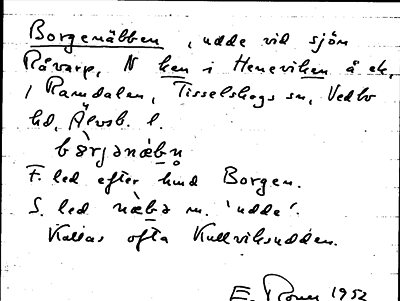 Borgenäbben, udde vid sjön
Råvarp, N hen i Heneviken å ek.
i Ramdalen, Tisselskogs sn, Vedbo
hd, Älvsb. l.
bɔ̀rjənæ̀bn̥
F. led efter hmd Borgen.
S. led næ̀bə m. 'udde'.
Kallas ofta Kullviksudden.
E. 1952